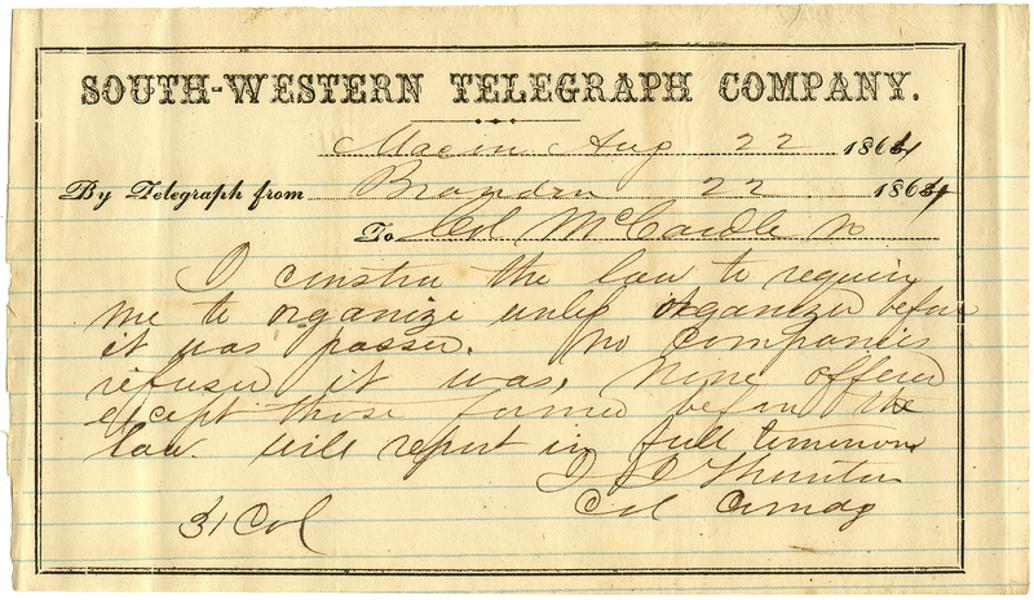 SOUTH-WESTERN TELEGRAPH COMPANY.
Macon Aug 22 1864
By Telegraph from Brandon 22 1864
To Col McCardle
I construe the law to require
me to organize unless organized before
it was passed. No companies
refused it was. None offered
except those formed before the
law. Will report in full tomorrow
Col Comdg
31 Col